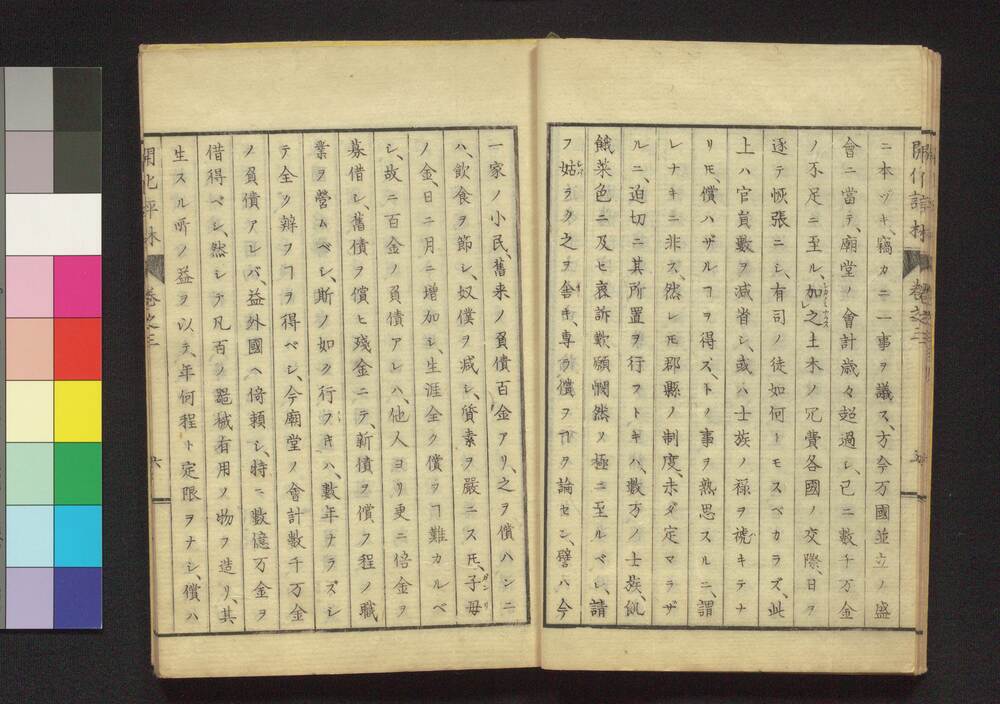 ニ本ヅキ、竊カニ一事ヲ議ス、方今万國並立ノ盛
會ニ當テ、廟堂ノ會計歳々超過シ、已ニ數千万金
ノ不足ニ至ル、加之土木ノ冗費各國ノ交際、日ヲ
逐テ恢張ニシ、有司ノ徒如何トモスベカラズ、此
上ハ官員數ヲ減省シ、或ハ士族ノ禄ヲ褫キテナ
リヿ、償ハザルヿヲ得ズ、トノ事ヲ熟思スルニ、謂
レナキニ非ス、然レ𪜈郡縣ノ制度、未ダ定マラザ
ルニ、迫切ニ其所置ヲ行フトキハ、數万ノ士族、飢
餓菜色ニ及ヒ哀訴歎願憫然ノ極ニ至ルベシ、請
フ姑ラク之ヲ舎キ、専ラ償ヲヿヲ論セン、譬ハ今
一家ノ小民、舊来ノ負債百金アリ、之ヲ償ハンニ
ハ、飲食ヲ節シ、奴僕ヲ減シ、質素ヲ嚴ニス𪜈、子母
ノ金、日ニ月ニ増加シ、生涯全ク償ヲヿ難カルベ
シ、故ニ百金ノ負債アレハ、他人ヨリ更ニ倍金ヲ
募借シ、舊債ヲ償ヒ殘金ニテ、新債ヲ償フ程ノ職
業ヲ營ムベシ、斯ノ如ク行フキハ、數年ナラズシ
テ全ク辨ヲヿヲ得ベシ、今廟堂ノ會計數千万金
ノ負債アレバ、益外國ヘ倚頼シ、特ニ數億万金ヲ
借得ベシ、然シテ凡百ノ器械有用ノ物ヲ造リ、其
生スル所ノ益ヲ以テ、年何程ト定限ヲナシ、償ハ
開化評林
巻之三
六